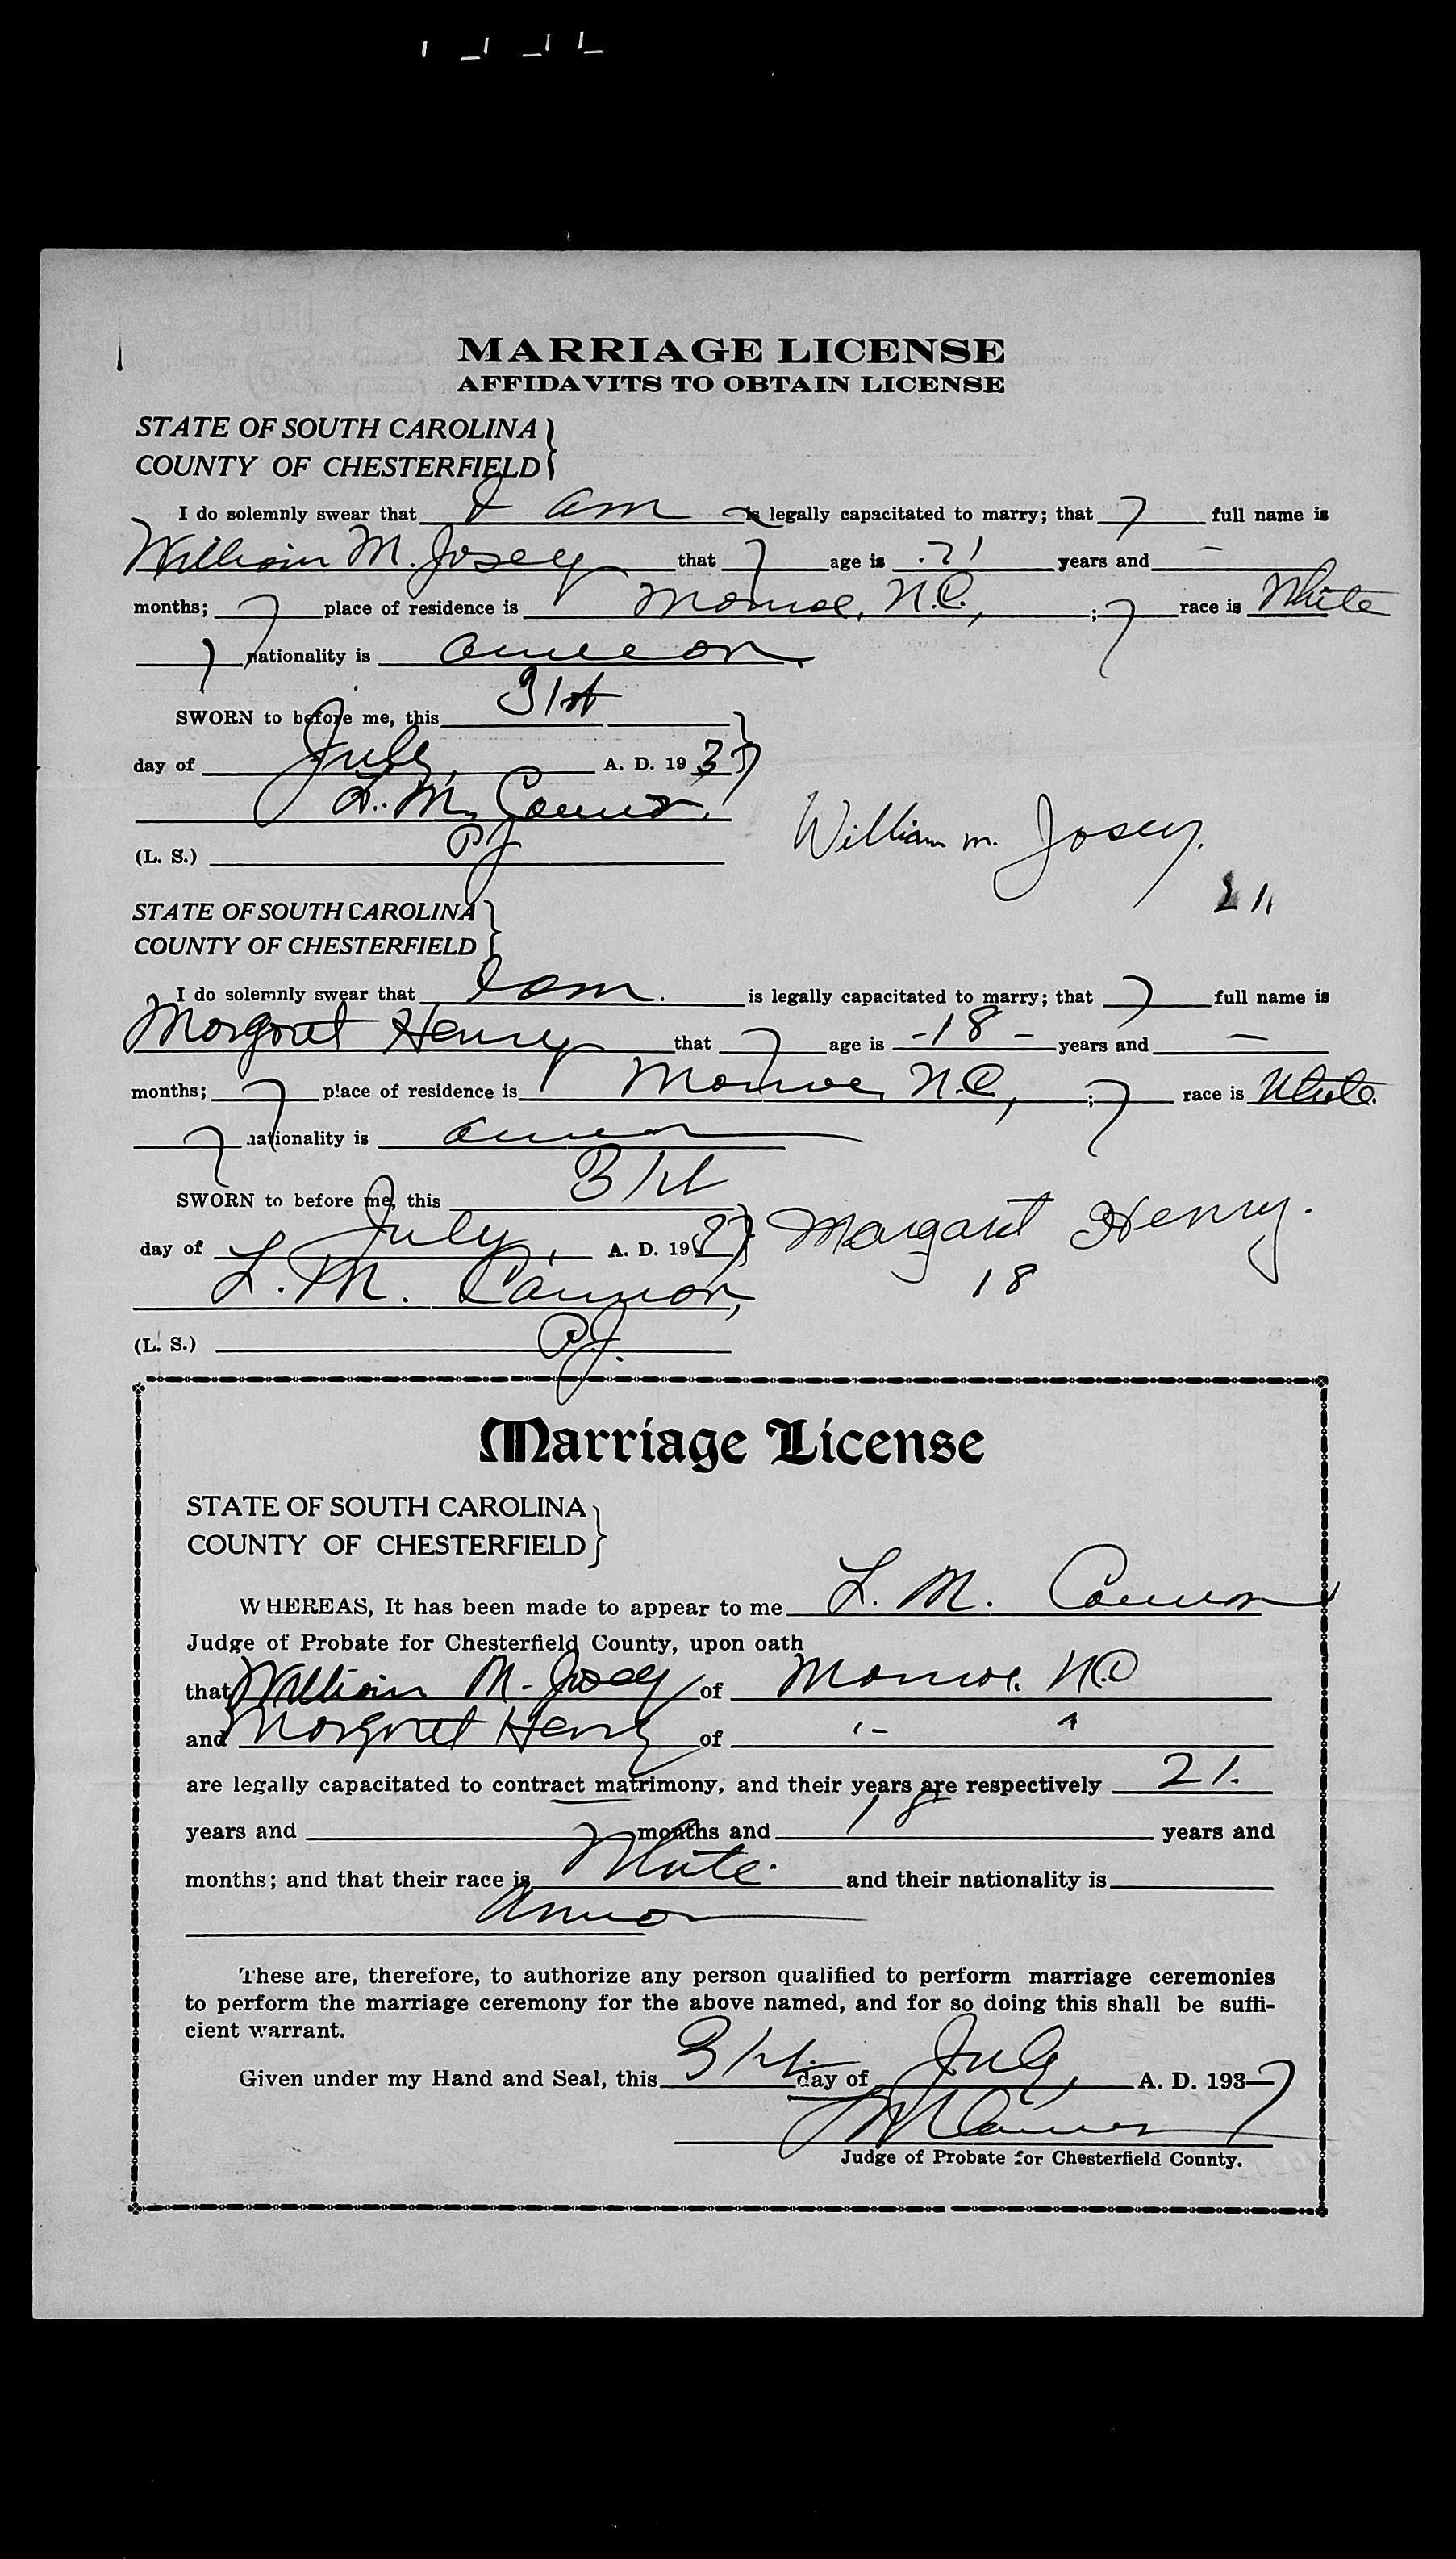 MARRIAGE LICENSE
AFFIDAVITS TO OBTAIN LICENSE
STATE OF SOUTH CAROLINA
COUNTY OF CHESTERFIELD
I do solemnly swear that I am is legally capacitated to marry; that full name is
William M. Josey that age is 21 years and —
months; place of residence is Monroe, N.C., ; race is White
nationality is
SWORN to before me, this 31st
day of July, A. D. 1937
L. M. Cannon,
PJ
(L. S.)
William M. Josey.
21
STATE OF SOUTH CAROLINA
COUNTY OF CHESTERFIELD
I do solemnly swear that I am. is legally capacitated to marry; that full name is
Margaret Henry that age is -18- years and —
months; place of residence is Monroe, N.C., ; race is White.
nationality is
SWORN to before me, this 31st
day of July, A. D. 1937
Margaret Henry.
18
L. M. Cannon,
P.J.
(L. S.)
Marriage License
STATE OF SOUTH CAROLINA
COUNTY OF CHESTERFIELD
WHEREAS, It has been made to appear to me L. M. Cannon
Judge of Probate for Chesterfield County, upon oath
that William M. Josey of Monroe, N.C
and Margaret Henry of
are legally capacitated to contract matrimony, and their years are respectively 21.
years and months and 18 years and
months; and that their race is White. and their nationality is
These are, therefore, to authorize any person qualified to perform marriage ceremonies
to perform the marriage ceremony for the above named, and for so doing this shall be suffi-
cient warrant.
Given under my Hand and Seal, this 31st. day of July, A. D. 193-7
L M Cannon
Judge of Probate for Chesterfield County.